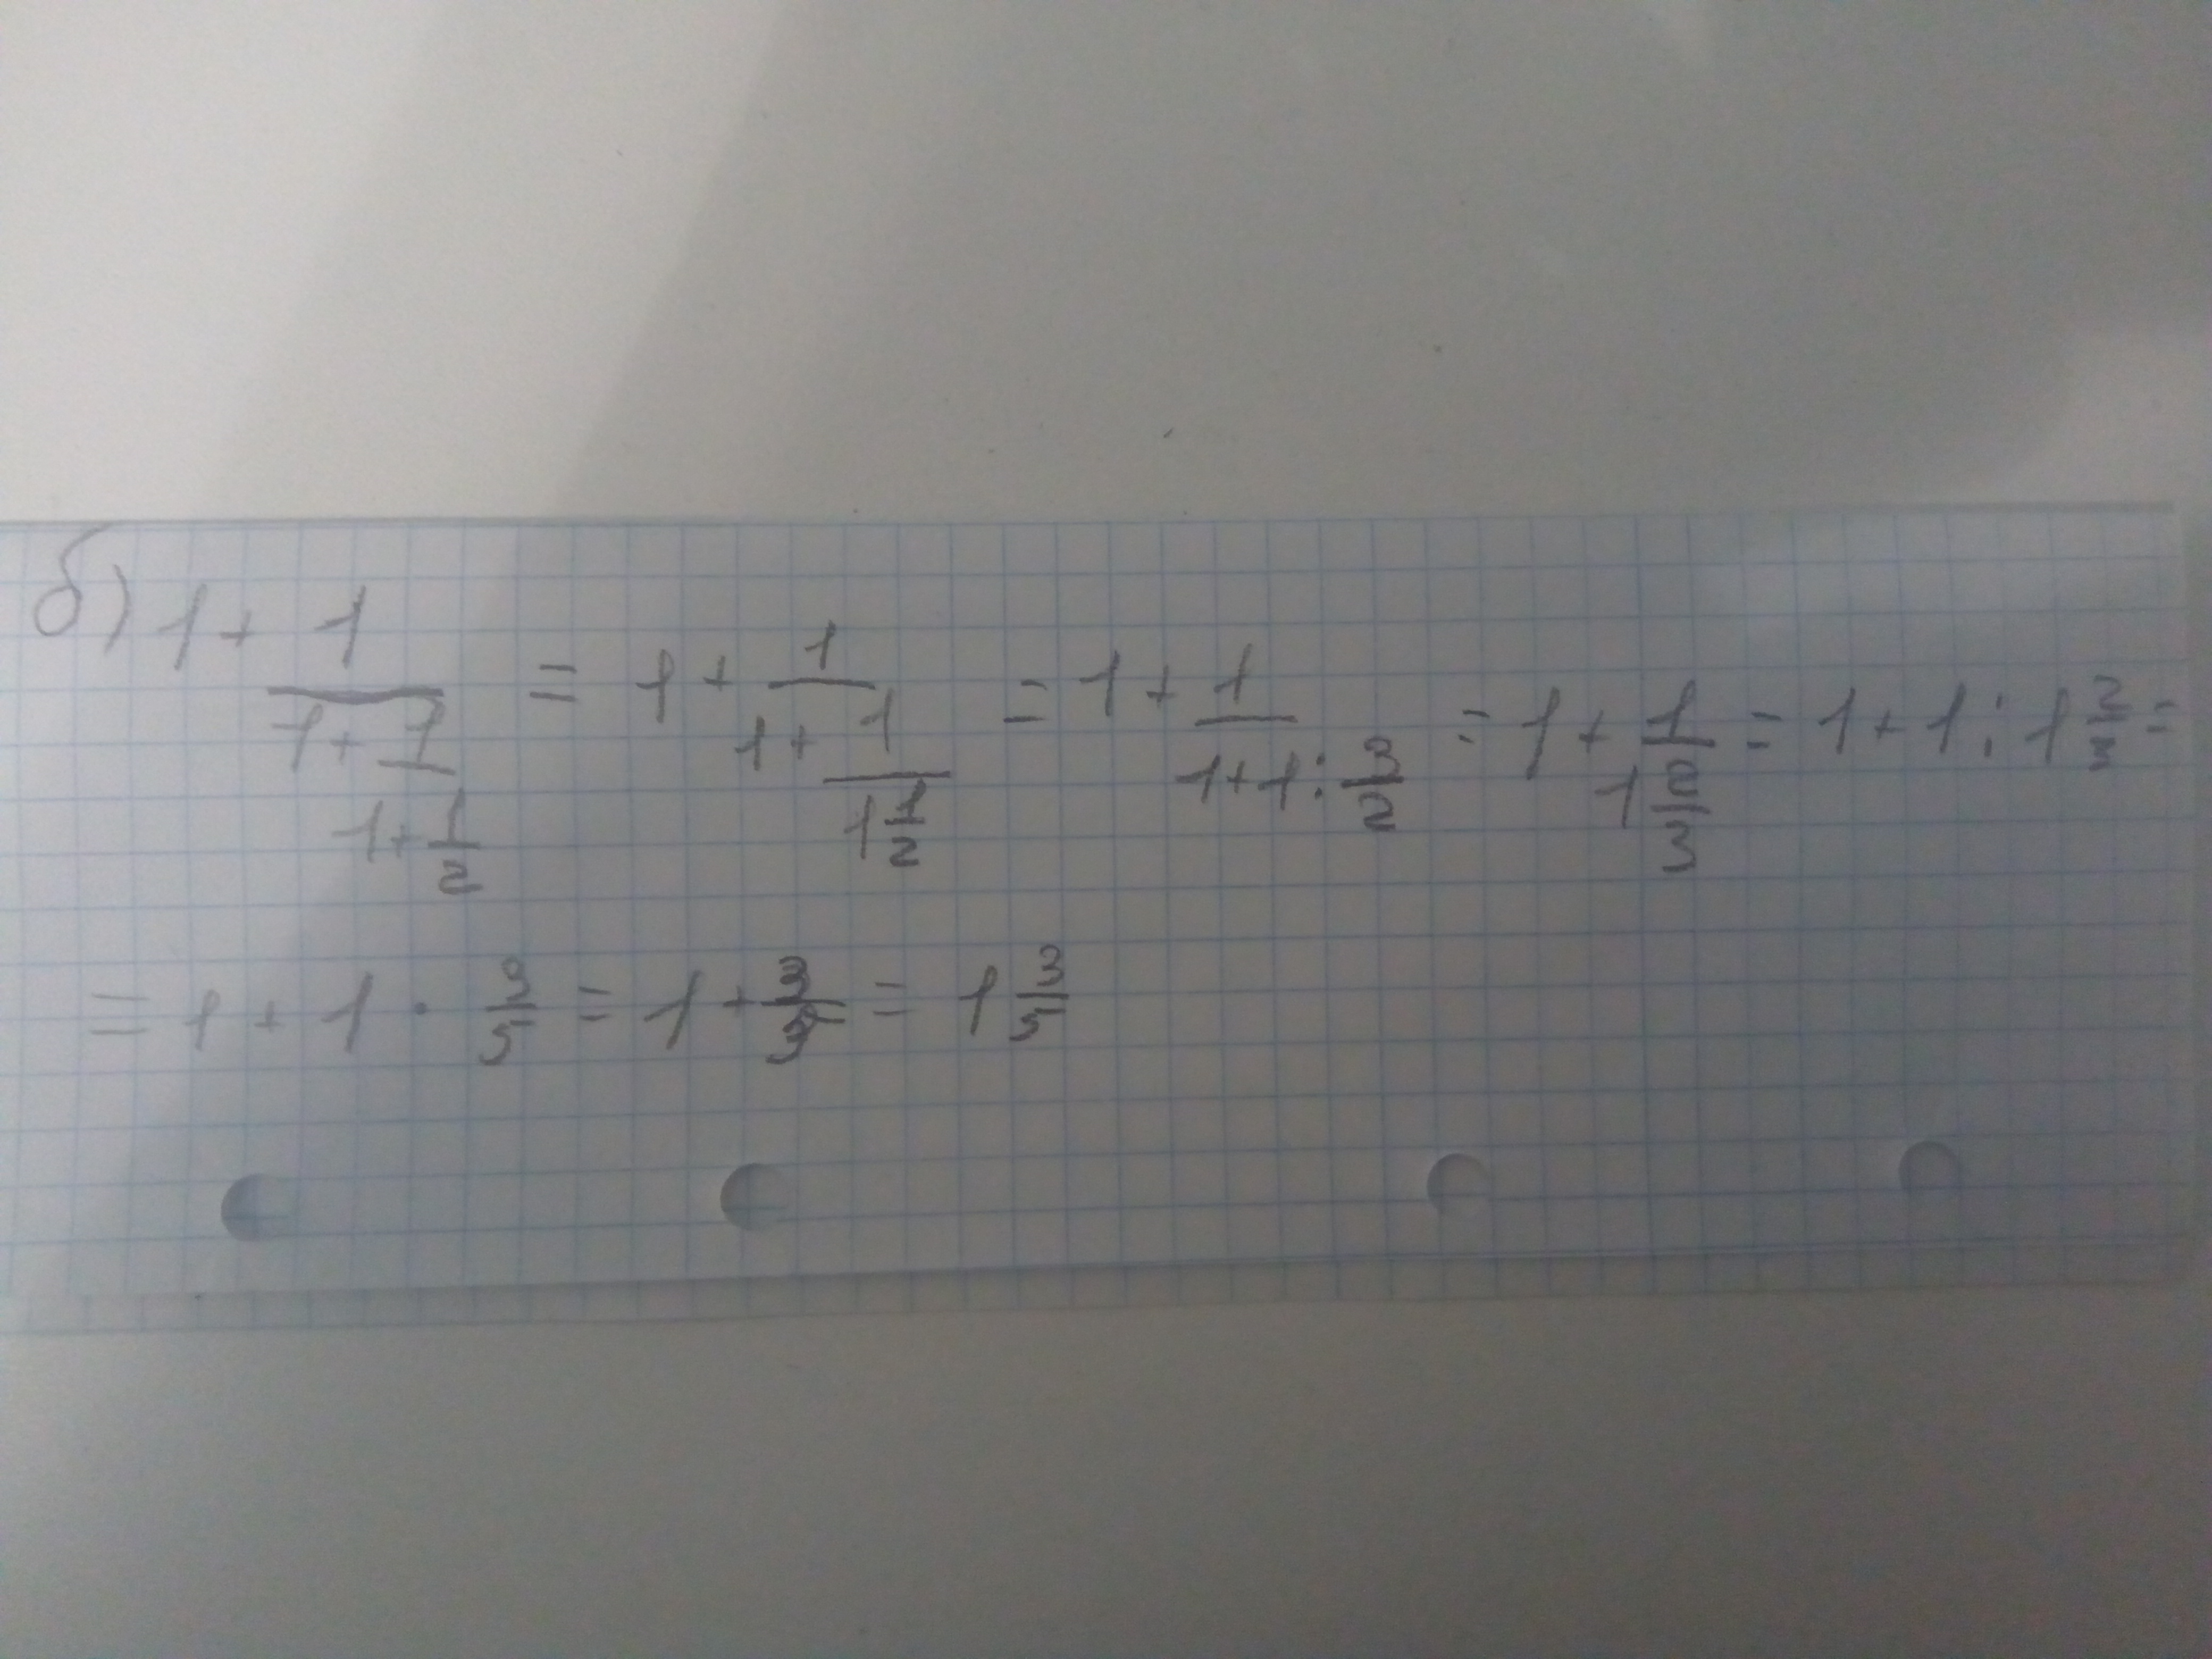 б) 1 + 1/(1 + 1/(1 + 1/2)) = 1 + 1/(1 + 1/(1 1/2)) = 1 + 1/(1 + 1 : 3/2) = 1 + 1/(1 2/3) = 1 + 1 : 1 2/3 =
= 1 + 1 · 3/5 = 1 + 3/5 = 1 3/5